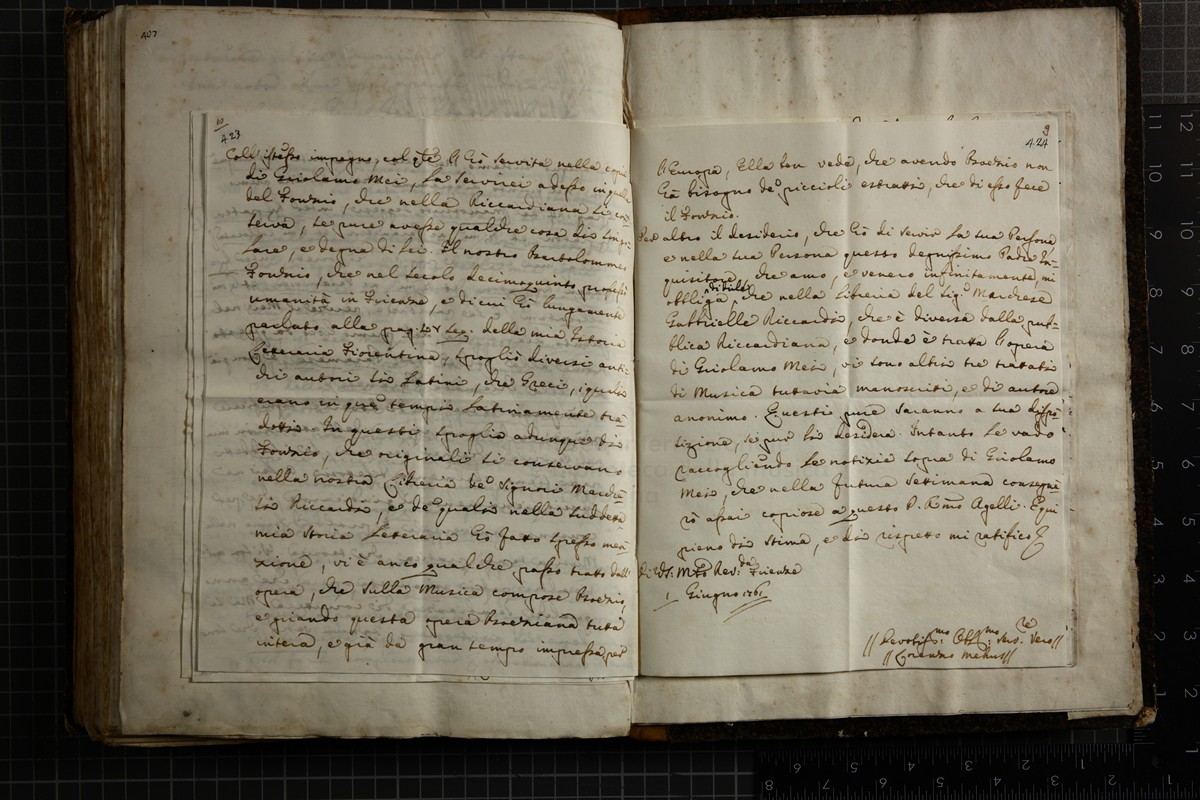 407
10
423
Coll'istesso impegno, col qle l'hò servita nella copia
di Girolamo Mei, La servirei adesso in quella
del Fonzio, che nella Riccardiana si con
serva, se pure avesse qualche cosa di singo
lare, e degna di Lei. Il nostro Bartolommeo
Fonzio, che nel secolo decimoquinto professò
umanità in Firenze, e di cui hò lungamente
parlato alla pag. seg. della mia Istoria
Letteraria Fiorentina, spogliò diversi anti
chi autori sì Latini, che Greci, i quali
erano in quei tempi Latinamente tra
dotti. In questi spogli adunque di
Fonzio, che originali si conservano
nella nostra Libreria de' Signori Marche
si Riccardi, e de' quali nella suddetta
mia Storia Letteraria hò fatto spesso men
zione, vi è anco qualche passo tratto dall'
opera, che sulla Musica compose Boezio,
e quando questa opera Boeziana tutta
intera, e già da gran tempo impressa per
9
424
l'Europa, Ella ben vede, che avendo Boezio non
hà bisogno de' piccioli estratti, che di esso fece
il Fonzio.
Per altro il desiderio, che hò di servir la sua Persona
e nella sua Persona questo degnissimo Padre In=
quisitore, che amo, e venero infinitamente, mi
obbliga che nella Libreria del Sigr Marchese
Gabbrielle Riccardi, che è diversa dalla pub=
blica Riccardiana, e donde è tratta l'opera
di Girolamo Mei, vi sono altri tre trattati
di Musica tuttavia manoscritti, e di autore
anonimo. Questi pure saranno a sua dispo
sizione, se pur li desidera. Intanto Le vado
raccogliendo le notizie sopra di Girolamo
Mei, che nella futura settimana consegne=
rò assai copiose a questo P. Rmo Agelli. E qui
pieno di stima, e di rispetto mi ratifico
Di V. S. M. Rev. da Firenze
1 Giugno 1761
// Devotissmo Obbmo Servre Vero //
// Lorenzo Mehus //